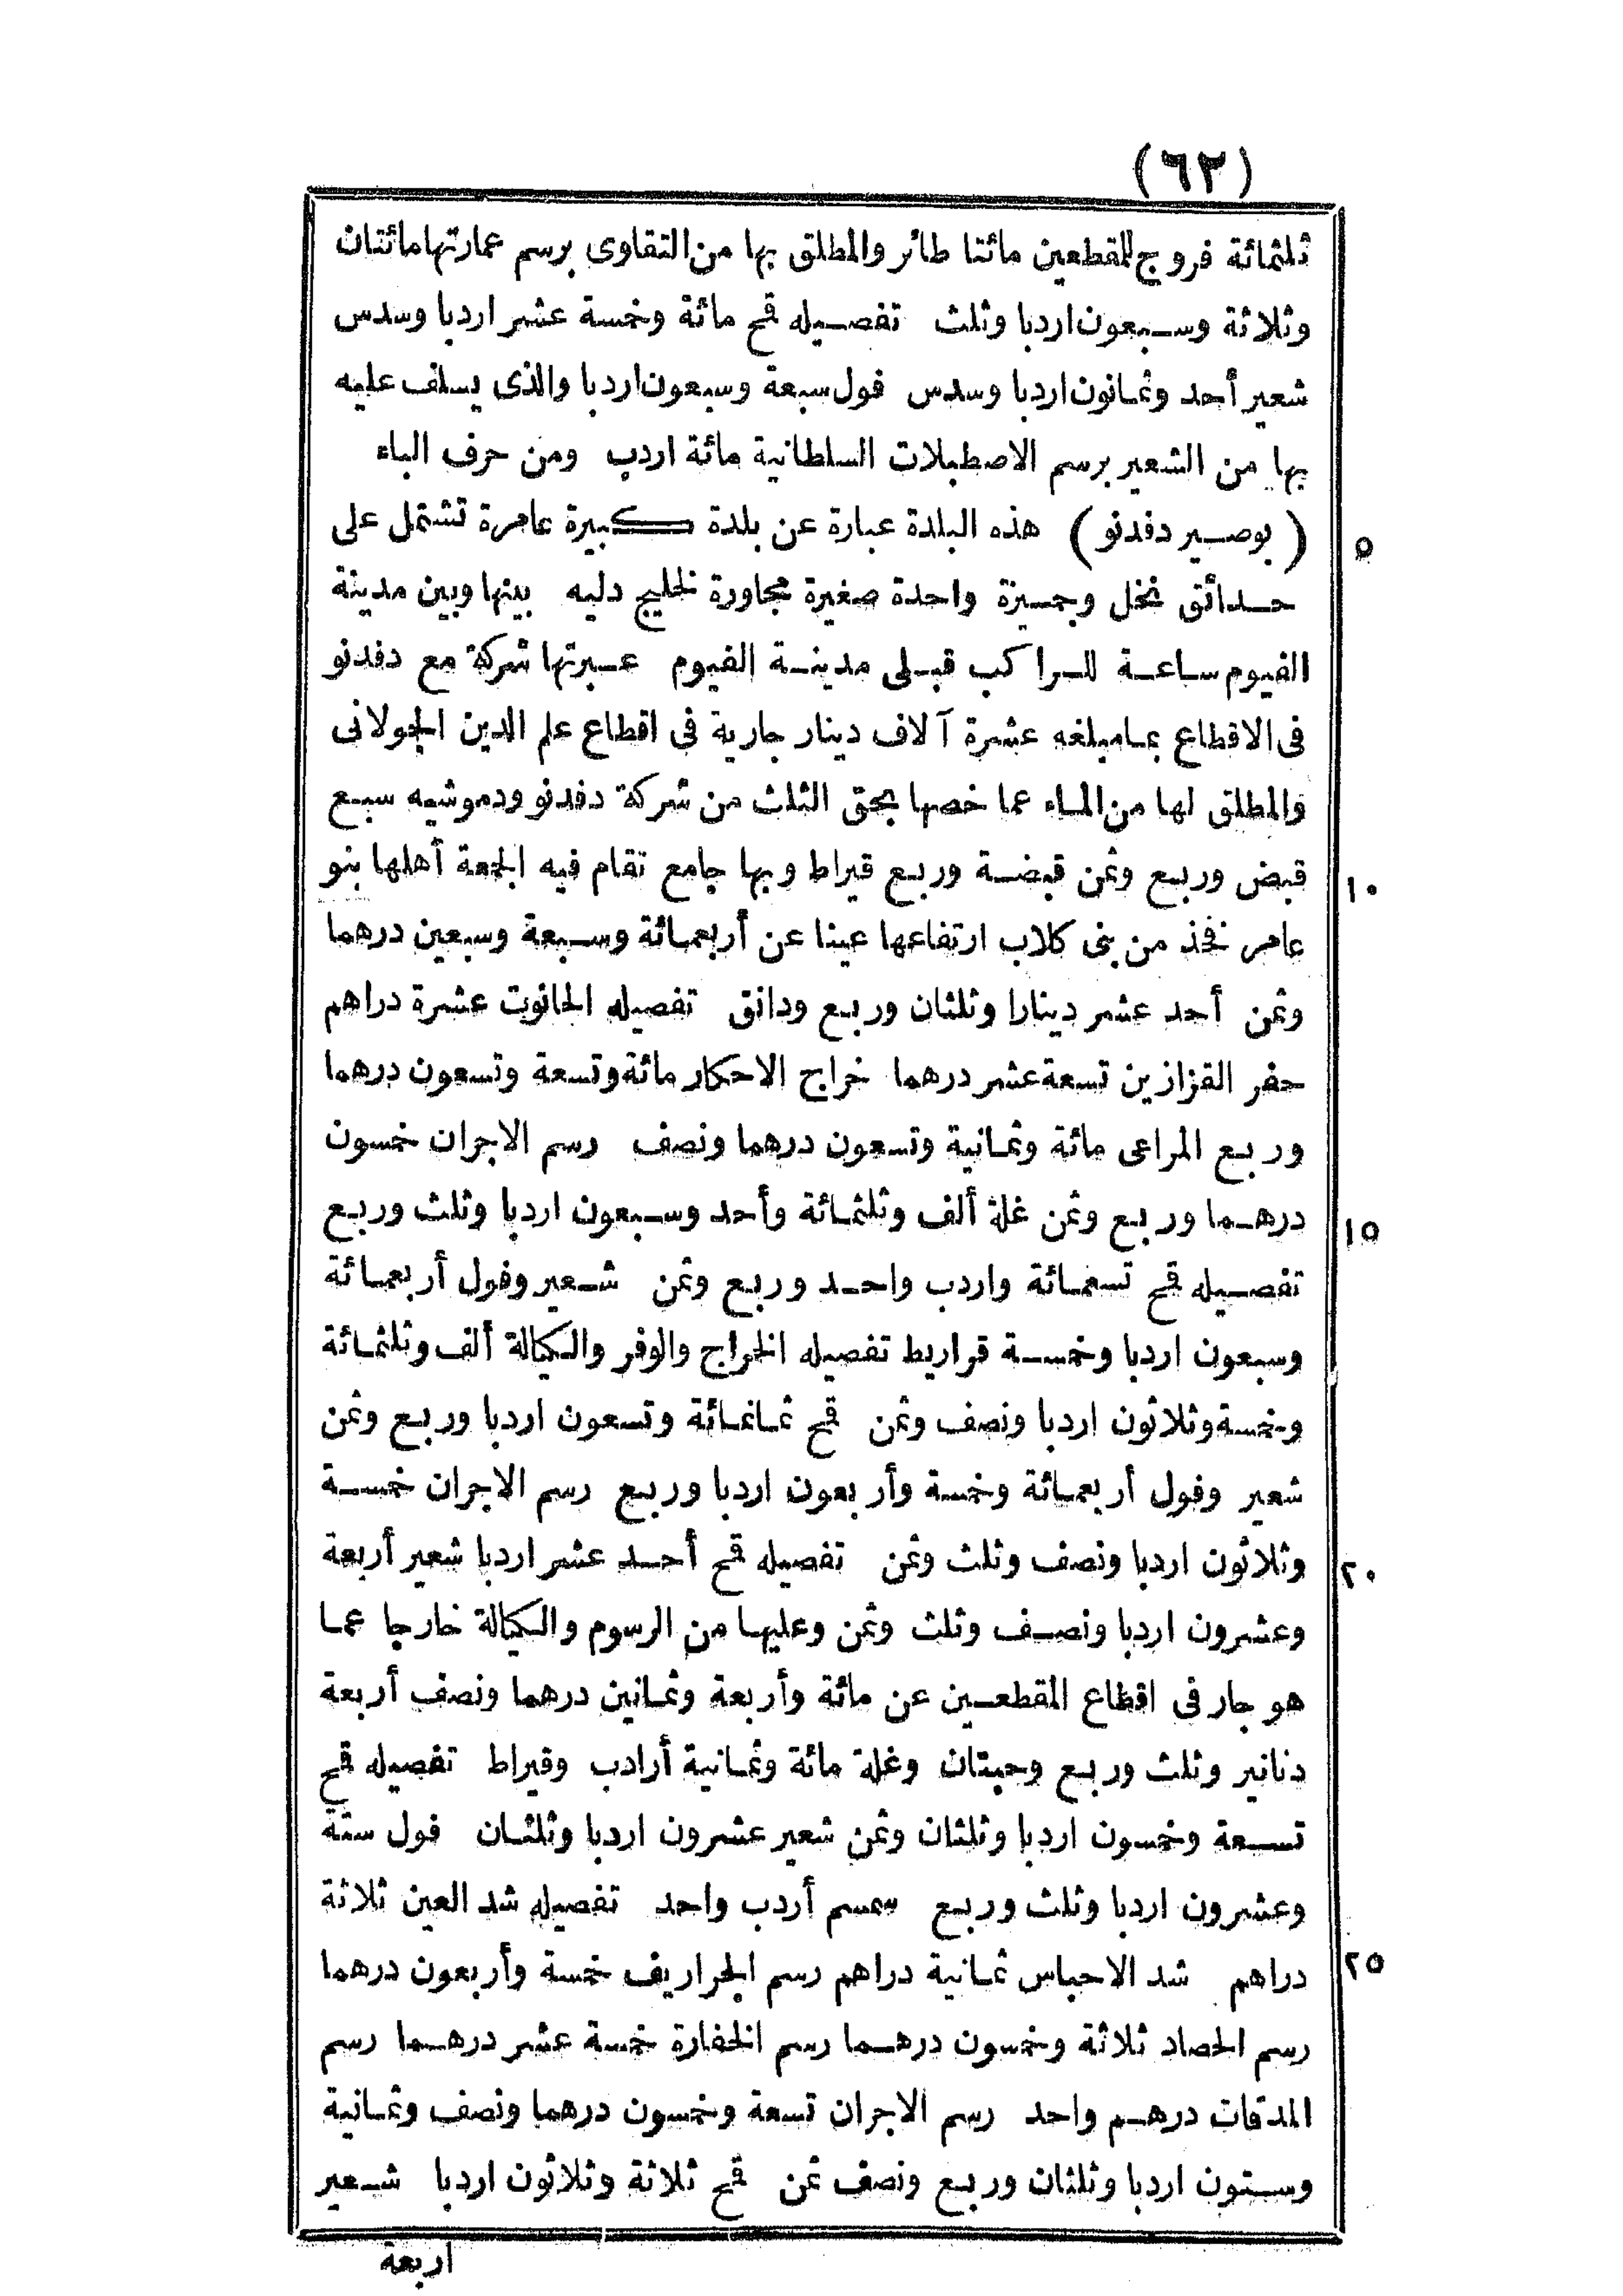 (٦٢)
ثلثمائة فروج للمقطعين مائتا طائر والمطلق بها من التقاوى برسم عمارتها مائتان
وثلاثة وسبعون اردبا وثلث تفصيله قمح مائة وخمسة عشر اردبا وسدس
شعير أحد وثمانون اردبا وسدس فول سبعة وسبعون اردبا والذى يسلف عليه
بها من الشعير برسم الاصطبلات السلطانية مائة اردب ومن حرف الباء
(بوصير دفدنو) هذه البلدة عبارة عن بلدة كبيرة عامرة تشتمل على
٥
حدائق نخل وجميزة واحدة صغيرة مجاورة لخليج دليه بينها وبين مدينة
الفيوم ساعة للراكب قبلى مدينة الفيوم عبرتها شركة مع دفدنو
فى الاقطاع بما مبلغه عشرة آلاف دينار جارية فى اقطاع علم الدين الجولانى
والمطلق لها من الماء عما خصها بحق الثلث من شركة دفدنو ودموشيه سبع
قبض وربع وثمن قبضة وربع قيراط وبها جامع تقام فيه الجمعة أهلها بنو
١٠
عامر نفخذ من بنى كلاب ارتفاعها عينا عن أربعمائة وسبعة وسبعين درهما
وثمن أحد عشر دينارا وثلثان وربع ودانق تفصيله الحانوت عشرة دراهم
حفر القزازين تسعة عشر درهما خراج الاحكار مائة وتسعة وتسعون درهما
وربع المراعى مائة وثمانية وتسعون درهما ونصف رسم الاجران خمسون
درهما وربع وثمن غلة ألف وثلثمائة وأحد وسبعون اردبا وثلث وربع
١٥
تفصيله قمح تسعمائة واردب واحد وربع وثمن شعير وفول أربعمائة
وسبعون اردبا وخمسة قراريط تفصيله الخراج والوفر والكيالة ألف وثلثمائة
وخمسة وثلاثون اردبا ونصف وثمن قمح ثمانمائة وتسعون اردبا وربع وثمن
شعير وفول أربعمائة وخمسة وأربعون اردبا وربع رسم الاجران خمسة
وثلاثون اردبا ونصف وثلث وثمن تفصيله قمح أحد عشر اردبا شعير أربعة
٢٠
وعشرون اردبا ونصف وثلث وثمن وعليها من الرسوم والكيالة خارجا عما
هو جار فى اقطاع المقطعين عن مائة وأربعة وثمانين درهما ونصف أربعة
دنانير وثلث وربع وحبتان وغلة مائة وثمانية أرادب وقيراط تفصيله قمح
تسعة وخمسون اردبا وثلثان وثمن شعير عشرون اردبا وثلثان فول ستة
وعشرون اردبا وثلث وربع سمسم أردب واحد تفصيله شد العين ثلاثة
دراهم شد الاحباس ثمانية دراهم رسم الجراريف خمسة وأربعون درهما
٢٥
رسم الحصاد ثلاثة وخمسون درهما رسم الخفارة خمسة عشر درهما رسم
المدقات درهم واحد رسم الاجران تسعة وخمسون درهما ونصف وثمانية
وستون اردبا وثلثان وربع ونصف ثمن قمح ثلاثة وثلاثون اردبا شعير
اربعة